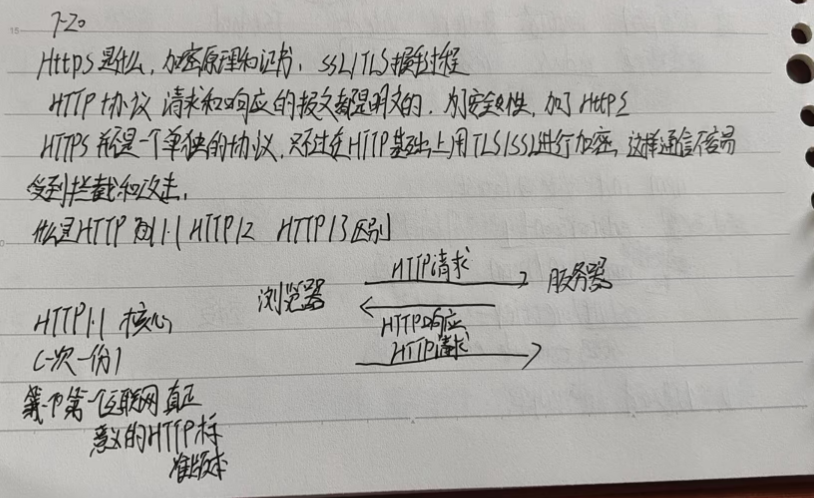 7-20
Https是什么，加密原理和证书，SSL/TLS握手过程
HTTP协议 请求和响应的报文都是明文的，为了安全性，加了Https
HTTPS并不是一个单独的协议，只不过在HTTP基础上用TLS/SSL进行加密，这样通信不容易
受到拦截和攻击，
什么是HTTP 1.1 HTTP/2 HTTP/3区别
浏览器 HTTP请求 服务器
HTTP响应
HTTP请求
HTTP1.1 核心
(一次一份)
第一个互联网真正
意义的HTTP标
准版本